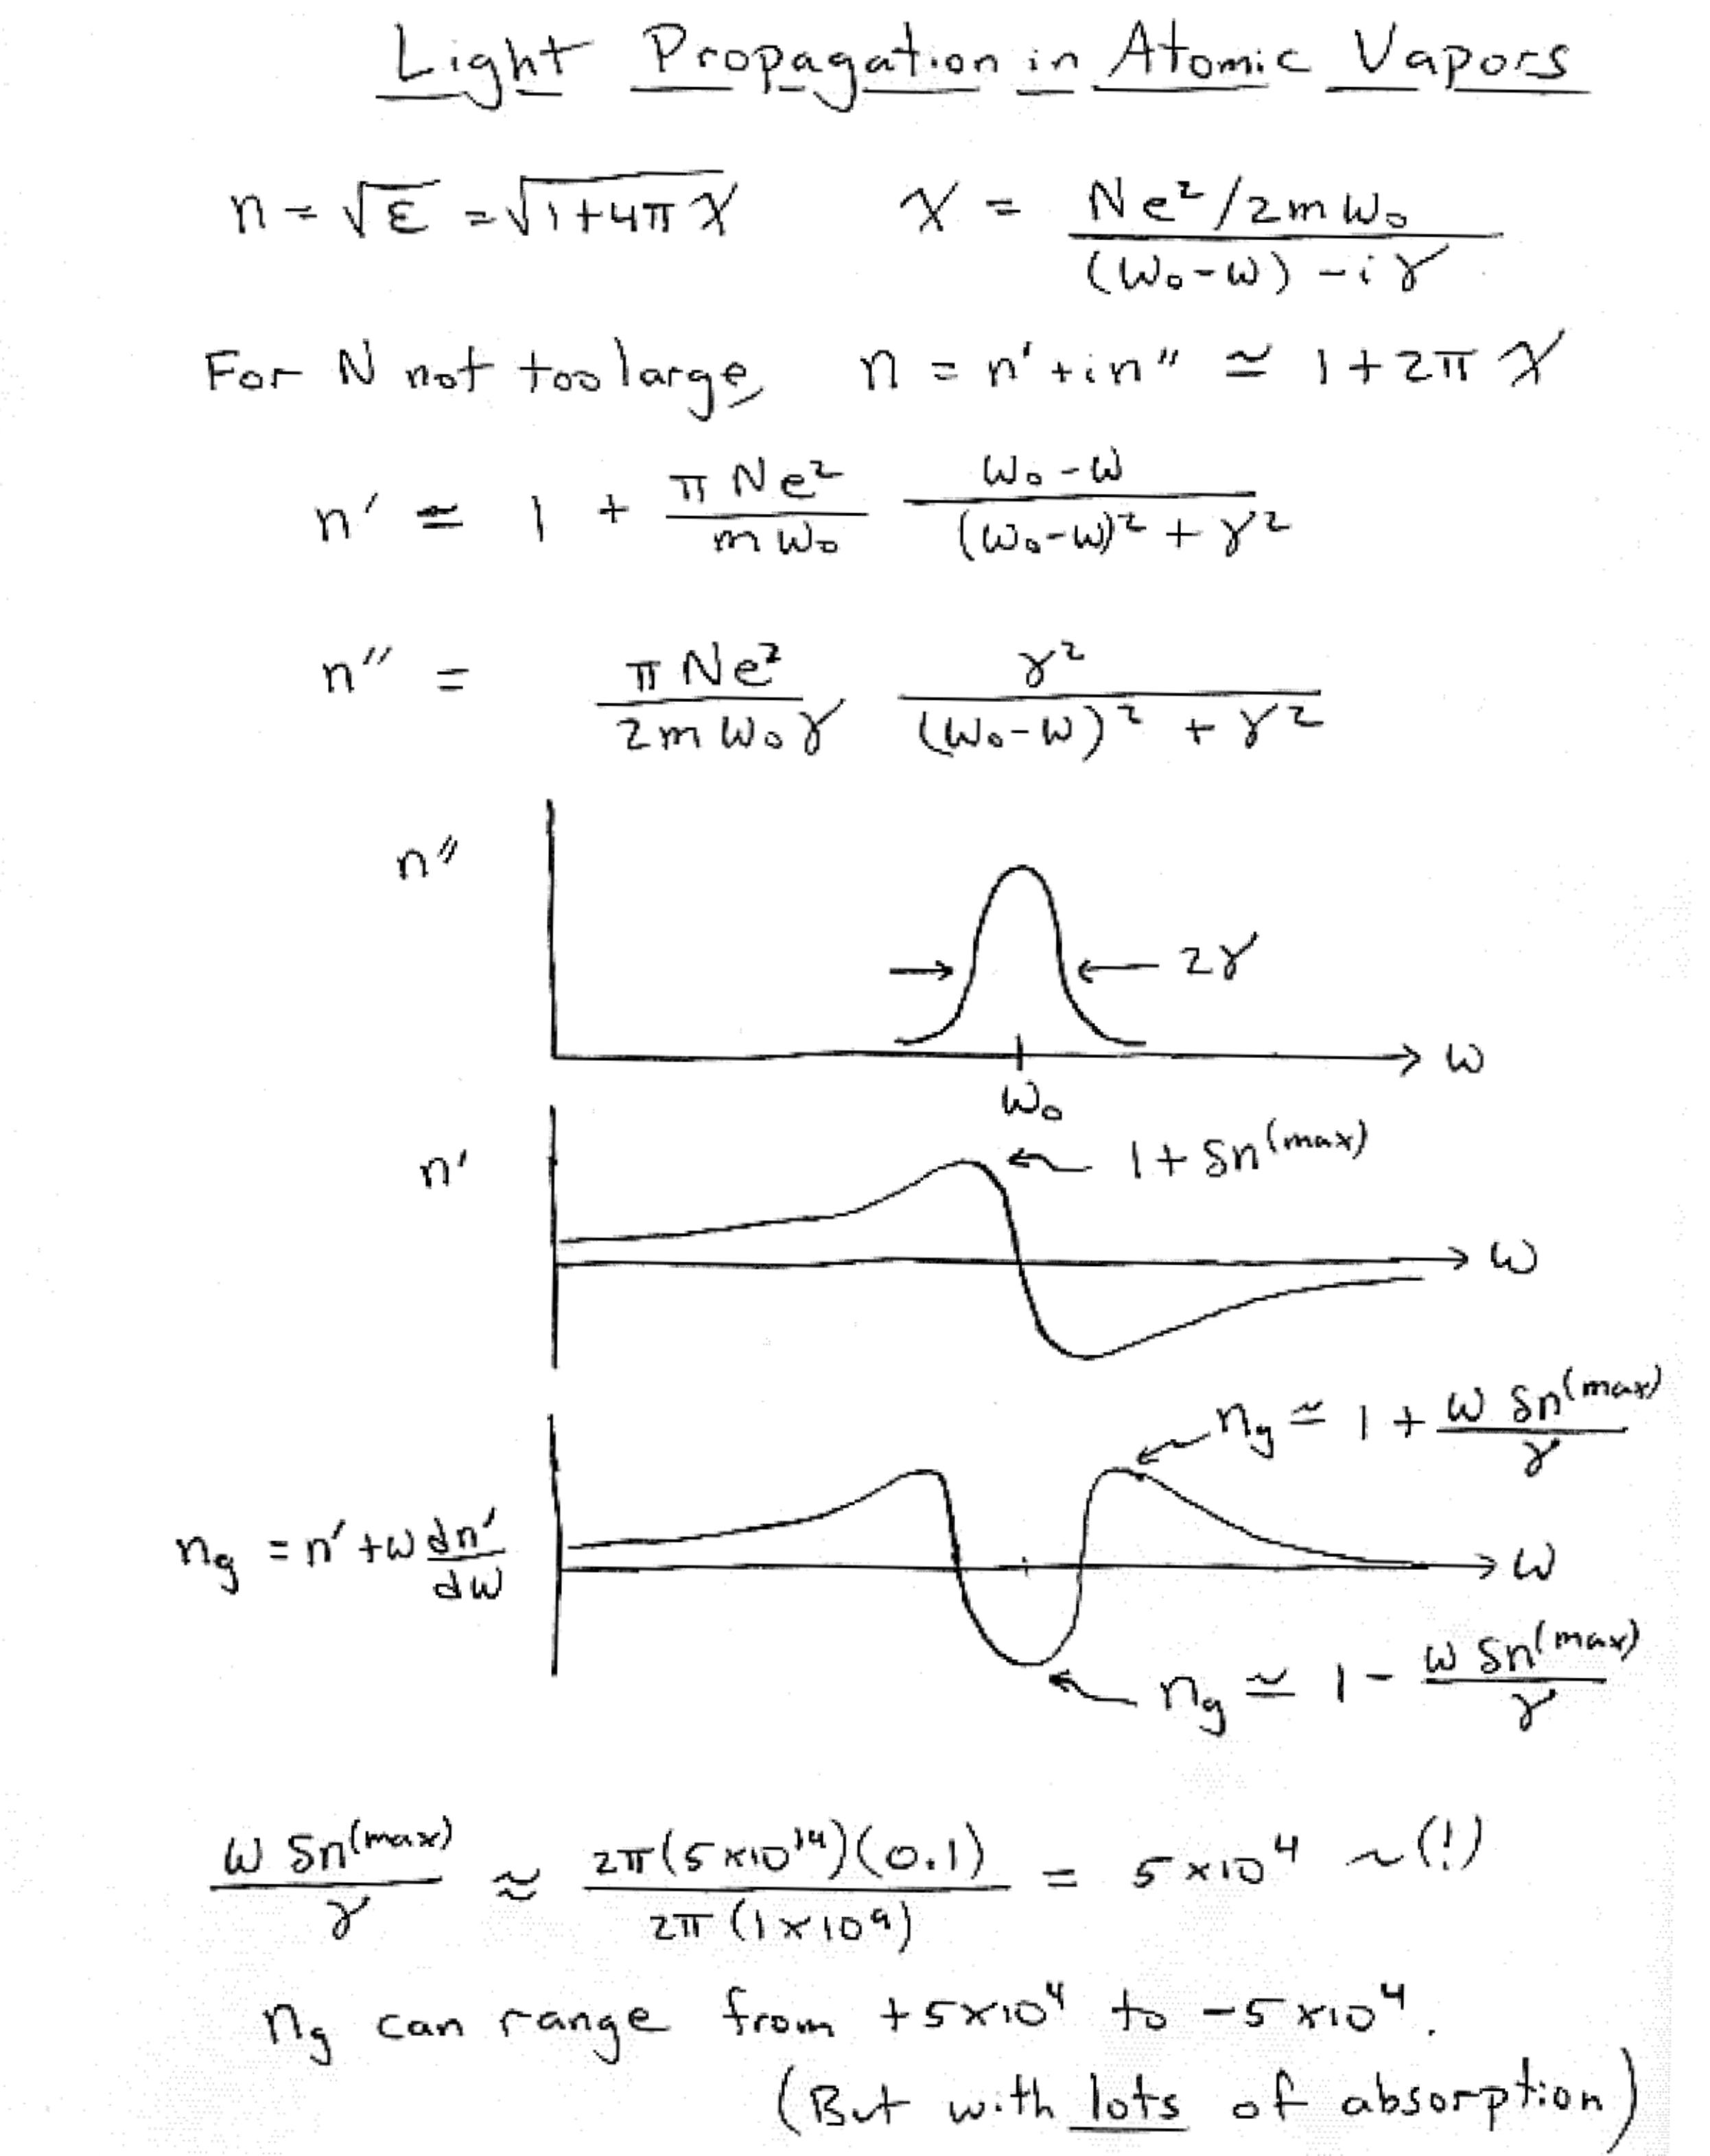 Light Propagation in Atomic Vapors
n = √ε = √(1+4πχ)    χ = (Ne²/2mω₀) / ((ω₀-ω) - iγ)
For N not too large, n = n' + in" ≃ 1 + 2πχ
n' ≃ 1 + (πNe²/mω₀) (ω₀-ω)/((ω₀-ω)² + γ²)
n" = (πNe²/2mω₀γ) γ²/((ω₀-ω)² + γ²)
n"
→ ← 2γ
ω
ω₀
n'
← 1 + δn^(max)
ω
← n_g ≃ 1 + ω δn^(max)/γ
n_g = n' + ω dn'/dω
ω
← n_g ≃ 1 - ω δn^(max)/γ
ω δn^(max)/γ ≈ 2π(5×10¹⁴)(0.1) / 2π(1×10⁹) = 5×10⁴ ~(!)
n_g can range from +5×10⁴ to -5×10⁴.
(But with lots of absorption)